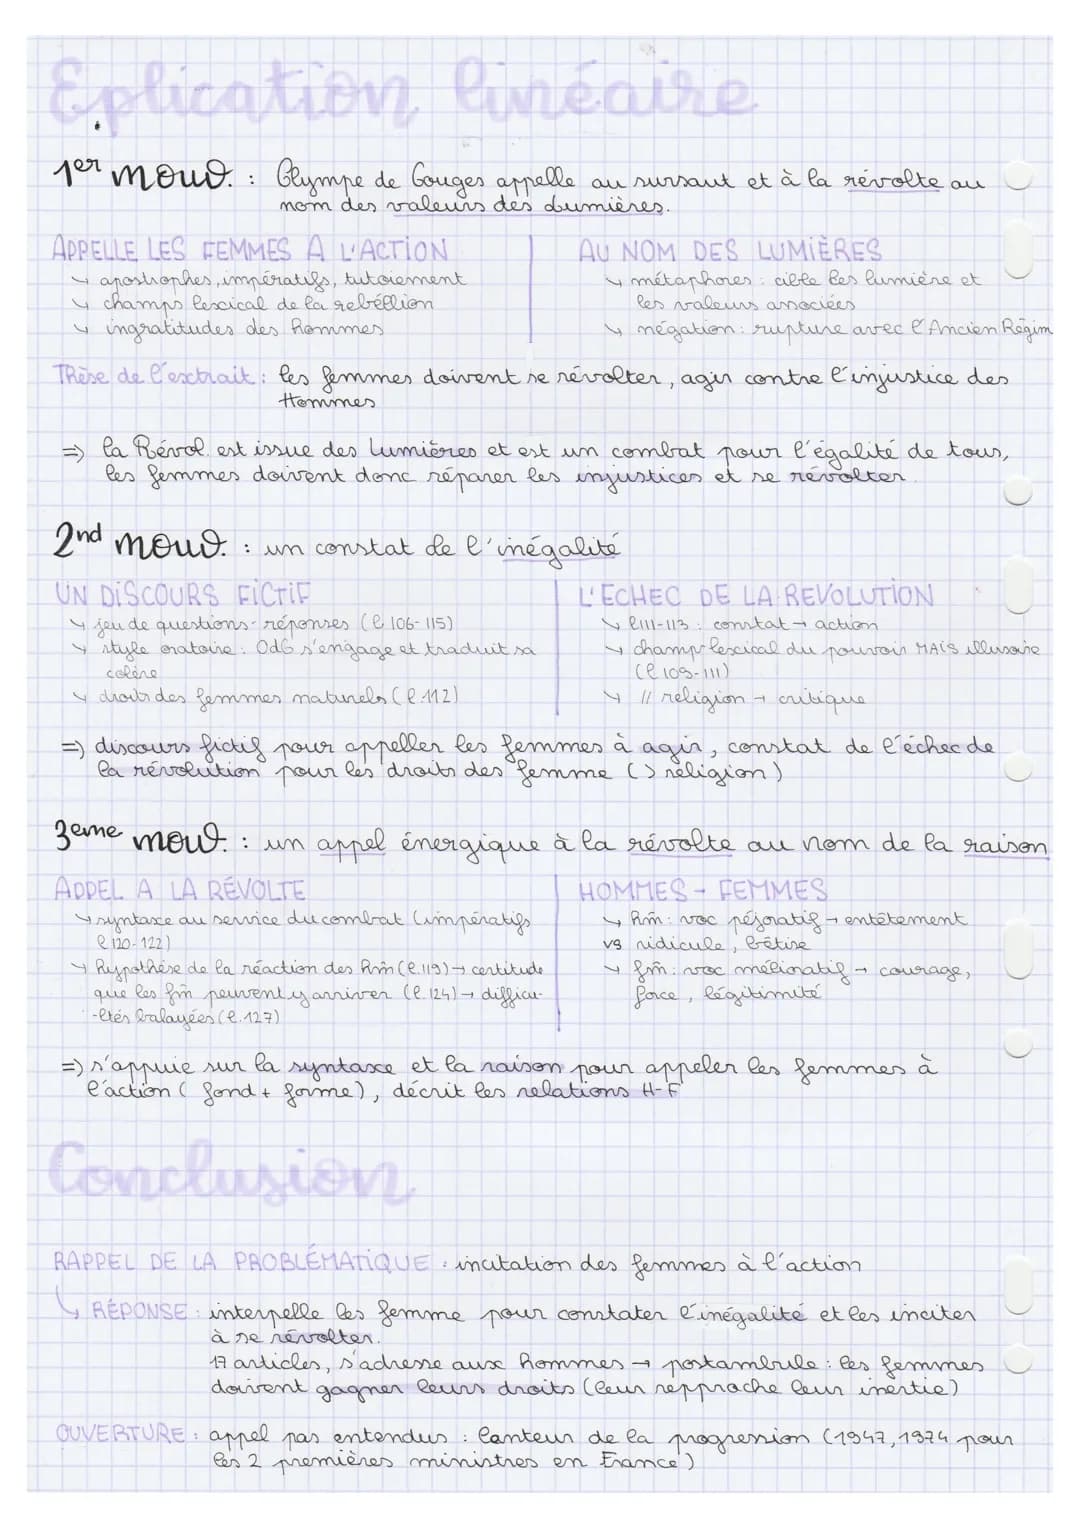 Eplication linéaire
1er mouv. : Olympe de Gouges appelle au sursaut et à la révolte au
nom des valeurs des Lumières.
APPELLE LES FEMMES A L'ACTION
↳ apostrophes, impératifs, tutoiement
↳ champs lexical de la rebéllion
↳ ingratitudes des hommes
AU NOM DES LUMIÈRES
↳ métaphores : cible les lumière et
les valeurs associées
↳ négation : rupture avec l'Ancien Régim
Thèse de l'extrait : les femmes doivent se révolter, agir contre l'injustice des
Hommes
=> la Révol. est issue des Lumières et est un combat pour l'égalité de tous,
les femmes doivent donc réparer les injustices et se révolter
2nd mouv. : un constat de l'inégalité
UN DISCOURS FICTIF
↳ jeu de questions-réponses (l 106-115)
↳ style oratoire : OdG s'engage et traduit sa
colère
↳ droits des femmes naturels (l.112)
L'ECHEC DE LA REVOLUTION
↳ l111-113 : constat → action
↳ champ lexical du pouvoir MAIS illusoire
(l 109-111)
↳ // religion → critique
=> discours fictif pour appeller les femmes à agir, constat de l'échec de
la révolution pour les droits des femme (> religion)
3eme mouv. : un appel énergique à la révolte au nom de la raison
APPEL A LA RÉVOLTE
↳ syntaxe au service du combat (impératifs
l 120-122)
↳ hypothèse de la réaction des hm (l.119) → certitude
que les fm peuvent y arriver (l.124) → difficu-
-ltés balayées (l.127)
HOMMES - FEMMES
↳ hm : voc péjoratif → entêtement
vs ridicule, bêtise
↳ fm : voc mélioratif → courage,
force, légitimité
=> s'appuie sur la syntaxe et la raison pour appeler les femmes à
l'action (fond + forme), décrit les relations H-F
Conclusion
RAPPEL DE LA PROBLÉMATIQUE : incitation des femmes à l'action
↳ RÉPONSE : interpelle les femme pour constater l'inégalité et les inciter
à se révolter.
17 articles, s'adresse aux hommes → postambule : les femmes
doivent gagner leurs droits (leur repproche leur inertie)
OUVERTURE : appel pas entendus : lenteur de la progression (1947, 1974 pour
les 2 premières ministres en France)